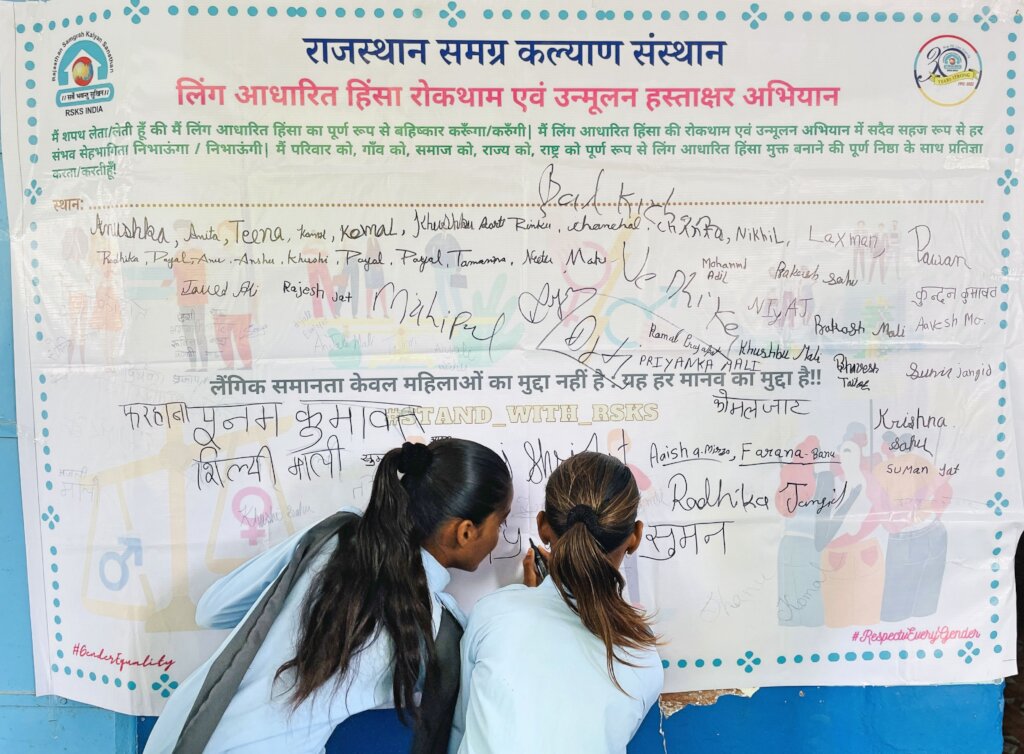 Rajasthan Samgrah Kalyan Sansthan
|| सर्वे भवन्तु सुखिनः ||
RSKS INDIA
राजस्थान समग्र कल्याण संस्थान
लिंग आधारित हिंसा रोकथाम एवं उन्मूलन हस्ताक्षर अभियान
मैं शपथ लेता/लेती हूँ की मैं लिंग आधारित हिंसा का पूर्ण रूप से बहिष्कार करूँगा/करुँगी| मैं लिंग आधारित हिंसा की रोकथाम एवं उन्मूलन अभियान में सदैव सहज रूप से हर
संभव सेहभागिता निभाऊंगा / निभाऊंगी| मैं परिवार को, गाँव को, समाज को, राज्य को, राष्ट्र को पूर्ण रूप से लिंग आधारित हिंसा मुक्त बनाने की पूर्ण निष्ठा के साथ प्रतिज्ञा
करता/करतीहूँ!
स्थान:
Anushka, Anita, Teena, Komal, Komal, Khushbu Aarti Rinku, chanchal, Nikhil, Laxman, Pawan
Radhika, Payal, Anu, Anshu, Khushi, Payal, Payal, Tamanna, Neetu, Mohammd Adil Prakash Sahu कुन्दन कुमावत
Javed Ali Rajesh Jat Mahipal NIYAJ Prakash Mali Aavesh Mo.
Kamal Prajapat Khushbu Mali Bhavesh Tailor Sunil Jangid
PRIYANKA MALI
लैंगिक समानता केवल महिलाओं का मुद्दा नहीं है : यह हर मानव का मुद्दा है!!
#STAND_WITH_RSKS
फरहाना पूनम कुमावत कोमल जाट
शिल्पी माली Aaisha Mirza, Farana Banu Krishna Sahu
Radhika Jangid Suman Jat
सुमन
#GenderEquality
#RespectEveryGender